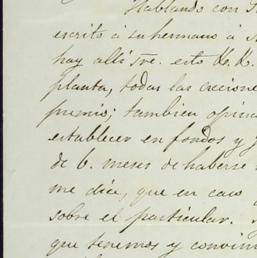 Hablando con
escrito á su hermano á
hay alli sre. esto K. K.
planta, todas las acciones
premio; tambien opina
establecer en fondos y
de 6. meses de haberse
me dice, que en caso
sobre el particular.
que tenemos y convini